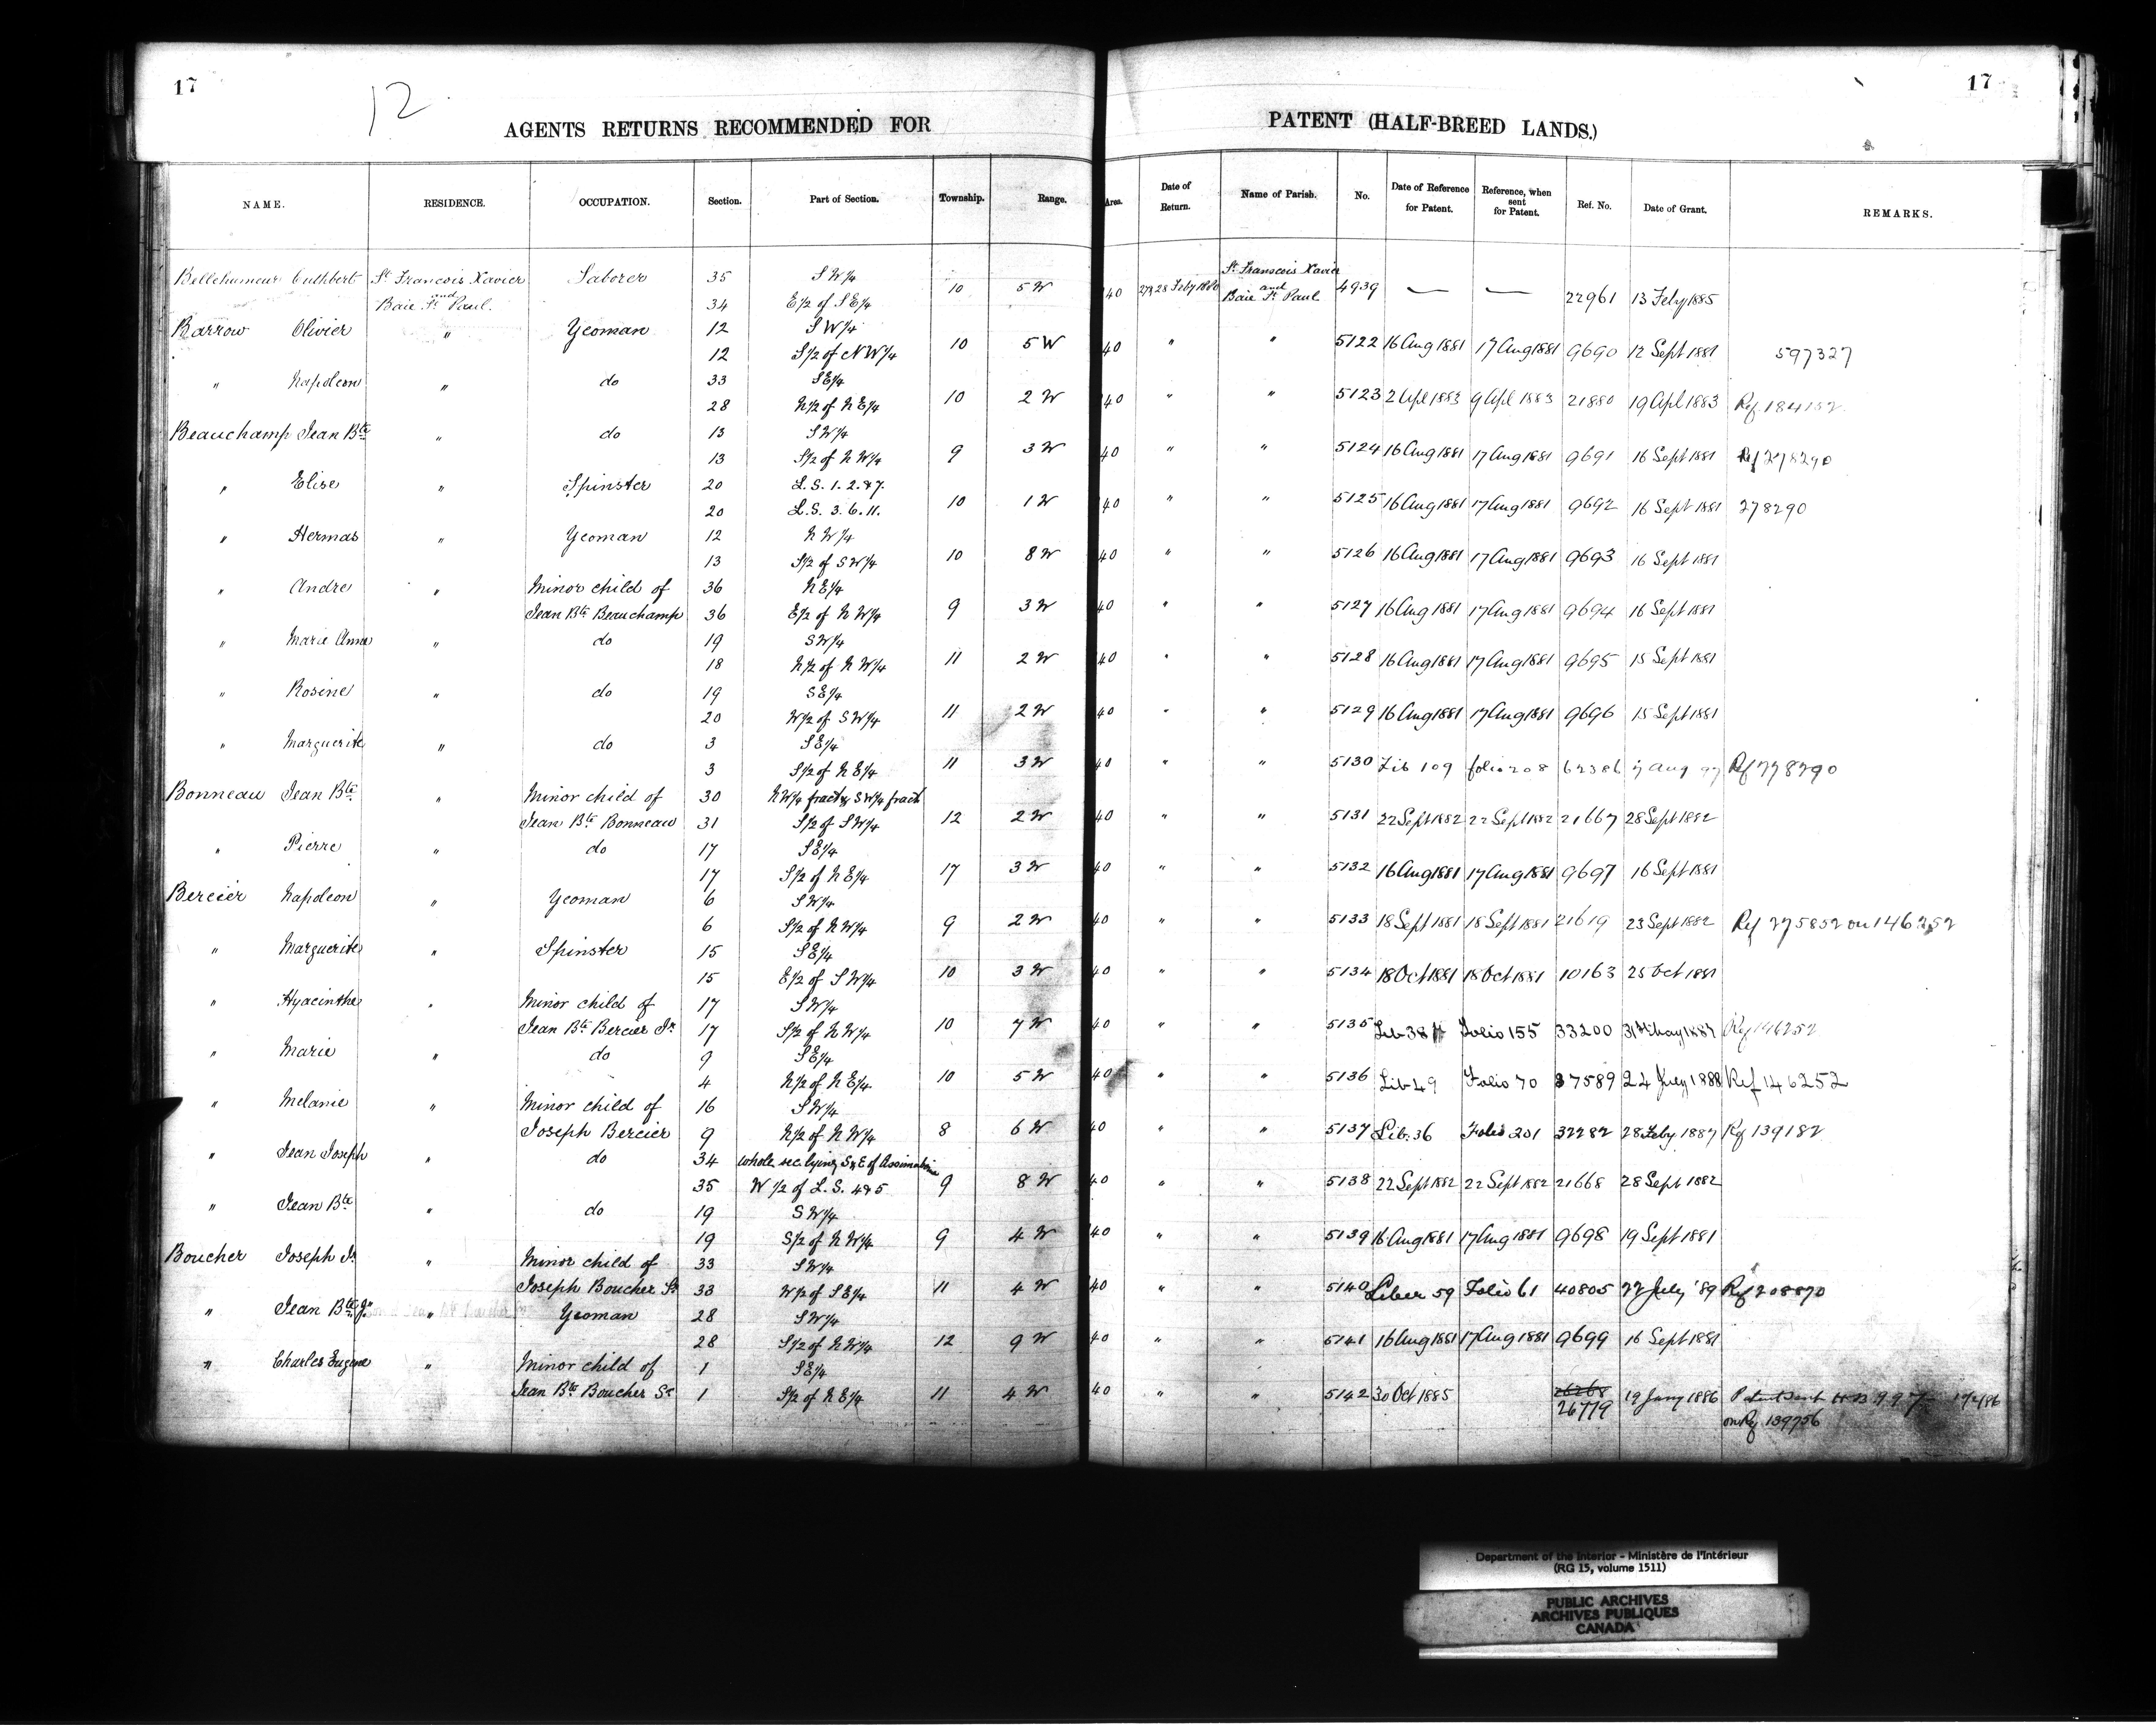 17
12
AGENTS RETURNS RECOMMENDED FOR PATENT (HALF-BREED LANDS.)
17
NAME. RESIDENCE. OCCUPATION. Section. Part of Section. Township. Range. Area. Date of Return. Name of Parish. No. Date of Reference for Patent. Reference, when sent for Patent. Ref. No. Date of Grant. REMARKS.
Bellehumeur Cuthbert St. Francois Xavier Laborer 35 S W 1/4 10 5 W 40 28 Feby 1880 St Franscois Xavier 4939 — — 22961 13 Feby 1885
and Baie St. Paul. 34 E 1/2 of S E 1/4 and Baie St. Paul
Barrow Olivier " Yeoman 12 S W 1/4 10 5 W 40 " " 5122 16 Aug 1881 17 Aug 1881 9690 12 Sept 1881 597327
12 S 1/2 of N W 1/4
" Napoleon " do 33 S E 1/4 10 2 W 40 " " 5123 2 Apl 1883 9 Apl 1883 21880 19 Apl 1883 Ref 184132
28 N 1/2 of N E 1/4
Beauchamp Jean Bte " do 13 S W 1/4 9 3 W 40 " " 5124 16 Aug 1881 17 Aug 1881 9691 16 Sept 1881 Ref 278290
13 S 1/2 of N W 1/4
" Elise " Spinster 20 L.S. 1. 2. & 7. 10 1 W 40 " " 5125 16 Aug 1881 17 Aug 1881 9692 16 Sept 1881 278290
20 L.S. 3. 6. 11.
" Hermas " Yeoman 12 N W 1/4 10 8 W 40 " " 5126 16 Aug 1881 17 Aug 1881 9693 16 Sept 1881
13 S 1/2 of S W 1/4
" Andre " Minor child of 36 N E 1/4 9 3 W 40 " " 5127 16 Aug 1881 17 Aug 1881 9694 16 Sept 1881
Jean Bte Beauchamp 36 E 1/2 of N W 1/4
" Marie Anne " do 19 S W 1/4 11 2 W 40 " " 5128 16 Aug 1881 17 Aug 1881 9695 15 Sept 1881
18 N 1/2 of N W 1/4
" Rosine " do 19 S E 1/4 11 2 W 40 " " 5129 16 Aug 1881 17 Aug 1881 9696 15 Sept 1881
20 W 1/2 of S W 1/4
" Marguerite " do 3 S E 1/4 11 3 W 40 " " 5130 Lib 109 folio 208 62386 Aug 97 Ref 278290
3 S 1/2 of N E 1/4
Bonneau Jean Bte " Minor child of 30 N W 1/4 fract & S W 1/4 fract 12 2 W 40 " " 5131 22 Sept 1882 22 Sept 1882 21667 28 Sept 1882
Jean Bte Bonneau 31 S 1/2 of S W 1/4
" Pierre " do 17 S E 1/4 17 3 W 40 " " 5132 16 Aug 1881 17 Aug 1881 9697 16 Sept 1881
17 S 1/2 of N E 1/4
Bercier Napoleon " Yeoman 6 S W 1/4 9 2 W 40 " " 5133 18 Sept 1881 18 Sept 1881 21619 23 Sept 1882 Ref 275852 on 146252
6 S 1/2 of N W 1/4
" Marguerite " Spinster 15 S E 1/4 10 3 W 40 " " 5134 18 Oct 1881 18 Oct 1881 10163 25 Oct 1881
15 E 1/2 of S W 1/4
" Hyacinthe " Minor child of 17 S W 1/4 10 7 W 40 " " 5135 Lib 38 Folio 155 33200 31st May 1887 Ref 146252
Jean Bte Bercier Jr 17 S 1/2 of N W 1/4
" Marie " do 9 S E 1/4 10 5 W 40 " " 5136 Lib 49 Folio 70 37589 24 July 1888 Ref 146252
4 N 1/2 of N E 1/4
" Melanie " Minor child of 16 S W 1/4 8 6 W 40 " " 5137 Lib. 36 Folio 201 32282 28 Feby 1887 Ref 139182
Joseph Bercier 9 N 1/2 of N W 1/4
" Jean Joseph " do 34 whole sec. lying S & E of Assiniboine 9 8 W 40 " " 5138 22 Sept 1882 22 Sept 1882 21668 28 Sept 1882
35 W 1/2 of L.S. 4 & 5
" Jean Bte " do 19 S W 1/4 9 4 W 40 " " 5139 16 Aug 1881 17 Aug 1881 9698 19 Sept 1881
19 S 1/2 of N W 1/4
Boucher Joseph Jr " Minor child of 33 S W 1/4 11 4 W 40 " " 5140 Liber 59 Folio 61 40805 22 July '89 Ref 208870
Joseph Boucher Sr 33 W 1/2 of S E 1/4
" Jean Bte Jr " Yeoman 28 S W 1/4 12 9 W 40 " " 5141 16 Aug 1881 17 Aug 1881 9699 16 Sept 1881
28 S 1/2 of N W 1/4
" Charles Eugene " Minor child of 1 S E 1/4 11 4 W 40 " " 5142 30 Oct 1885 26268 19 Jany 1886 Patent sent
Jean Bte Boucher Sr 1 S 1/2 of N E 1/4 26779 on Ref 139756
Department of the Interior - Ministère de l'Intérieur
(RG 15, volume 1511)
PUBLIC ARCHIVES
ARCHIVES PUBLIQUES
CANADA